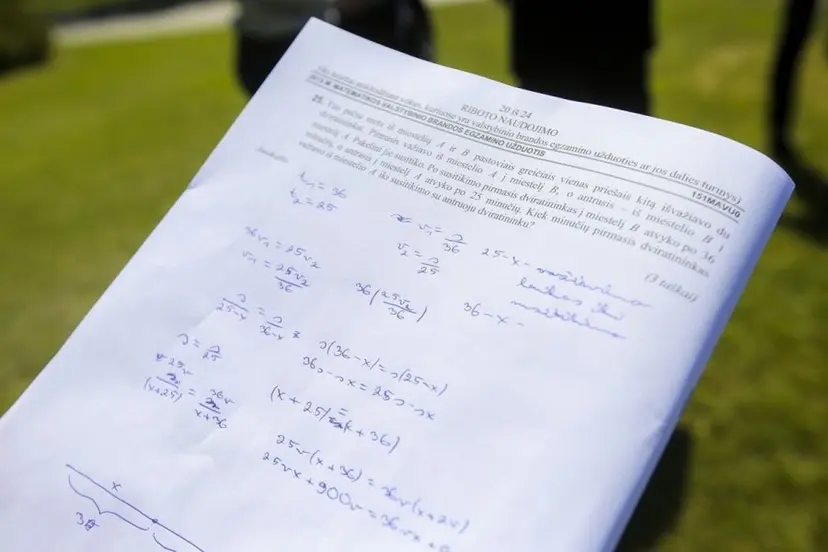 20 iš 24
RIBOTO NAUDOJIMO
(iki teisėtai atskleidžiant vokus, kuriuose yra valstybinio brandos egzamino užduoties ar jos dalies turinys)
MATEMATIKOS VALSTYBINIO BRANDOS EGZAMINO UŽDUOTIS
151MAVU0
25. Tuo pačiu metu iš miestelių A ir B pastoviais greičiais vienas priešais kitą išvažiavo du
dviratininkai. Pirmasis važiavo iš miestelio A į miestelį B, o antrasis – iš miestelio B į
miestelį A. Pakeliui jie susitiko. Po susitikimo pirmasis dviratininkas į miestelį B atvyko po 36
minučių, o antrasis į miestelį A atvyko po 25 minučių. Kiek minučių pirmasis dviratininkas
važiavo iš miestelio A iki susitikimo su antruoju dviratininku?
(3 taškai)
t₁ = 36
t₂ = 25
v₁ = s/36
v₂ = s/25
25-x-
važiavimo
laikas iki
susitikimo
36-x-
36v₁ = 25v₂
v₁ = 25v₂/36
36(25v₂/36)
s/25-x = s/36-x
s(36-x) = s(25-x)
36s-sx = 25s-sx
s = s/25
25v/(x+25) = 36v/x+36
(x+25) = (x+36)
25v(x+36) = 36v(x+25)
25vx+900v = 36vx+
x
36